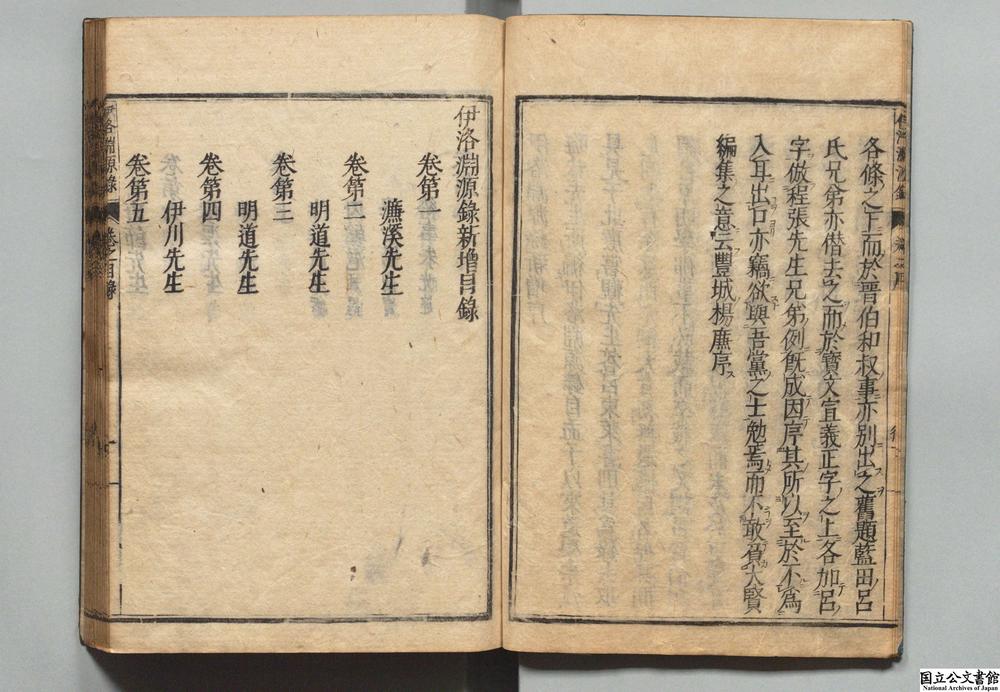 各條之上而於晋伯和叔事亦別出之舊題藍田呂
氏兄弟亦僣去之而於寶文宣義正字之上各加呂
字倣程張先生兄弟例旣成因序其所以至於不為
入耳出口亦竊欲與吾黨之士勉焉而不敢負大賢
編集之意云豐城楊廉序
伊洛淵源錄新增目錄
卷第一
濂溪先生
卷第二
明道先生
卷第三
明道先生
卷第四
伊川先生
卷第五
伊洛淵源錄
卷之目錄
国立公文書館
National Archives of Japan